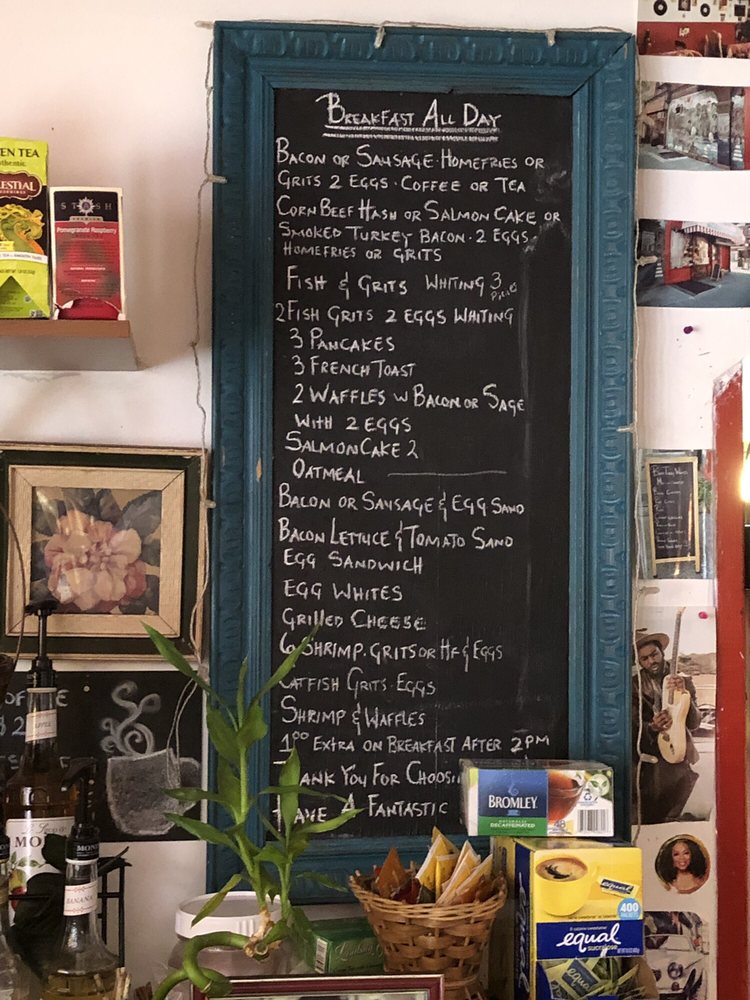 BREAKFAST ALL DAY
BACON OR SAUSAGE · HOMEFRIES OR
GRITS 2 EGGS · COFFEE OR TEA
CORN BEEF HASH OR SALMON CAKE OR
SMOKED TURKEY BACON · 2 EGGS ·
HOMEFRIES OR GRITS
FISH & GRITS WHITING 3
2 FISH GRITS 2 EGGS WHITING
3 PANCAKES
3 FRENCH TOAST
2 WAFFLES W BACON OR SAGE
WITH 2 EGGS
SALMON CAKE 2
OATMEAL
BACON OR SAUSAGE & EGG SAND
BACON LETTUCE & TOMATO SAND
EGG SANDWICH
EGG WHITES
GRILLED CHEESE
6 SHRIMP. GRITS OR HF & EGGS
CATFISH GRITS · EGGS
SHRIMP & WAFFLES
1⁰⁰ EXTRA ON BREAKFAST AFTER 2PM
ANK YOU FOR CHOOSI
HAVE A FANTASTIC
EN TEA
thentic
LESTIAL
STASH
Pomegranate Raspberry
BROMLEY
NATURALLY
DECAFFEINATED
equal
400
PACKETS
equal
sucralose
equal
MO
BANANA